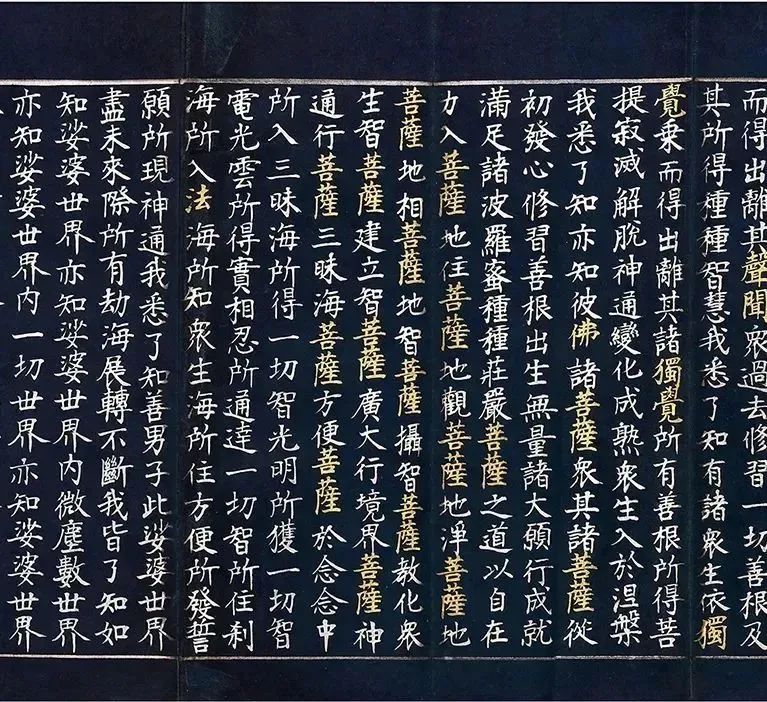 而得出離其聲聞眾過去修習一切善根及
其所得種種智慧我悉了知有諸眾生依獨
覺乗而得出離其諸獨覺所有善根所得菩
提寂滅解脫神通變化成熟衆生入於涅槃
我悉了知亦知彼佛諸菩薩衆其諸菩薩從
初發心修習善根出生無量諸大願行成就
滿足諸波羅蜜種種莊嚴菩薩之道以自在
力入菩薩地住菩薩地觀菩薩地淨菩薩地
菩薩地相菩薩地智菩薩攝智菩薩教化衆
生智菩薩建立智菩薩廣大行境界菩薩神
通行菩薩三昧海菩薩方便菩薩於念念中
所入三昧海所得一切智光明所獲一切智
電光雲所得實相忍所通達一切智所住刹
海所入法海所知衆生海所住方便所發誓
願所現神通我悉了知善男子此娑婆世界
盡未來際所有劫海展轉不斷我皆了知如
知娑婆世界亦知娑婆世界内微塵數世界
亦知娑婆世界内一切世界亦知娑婆世界